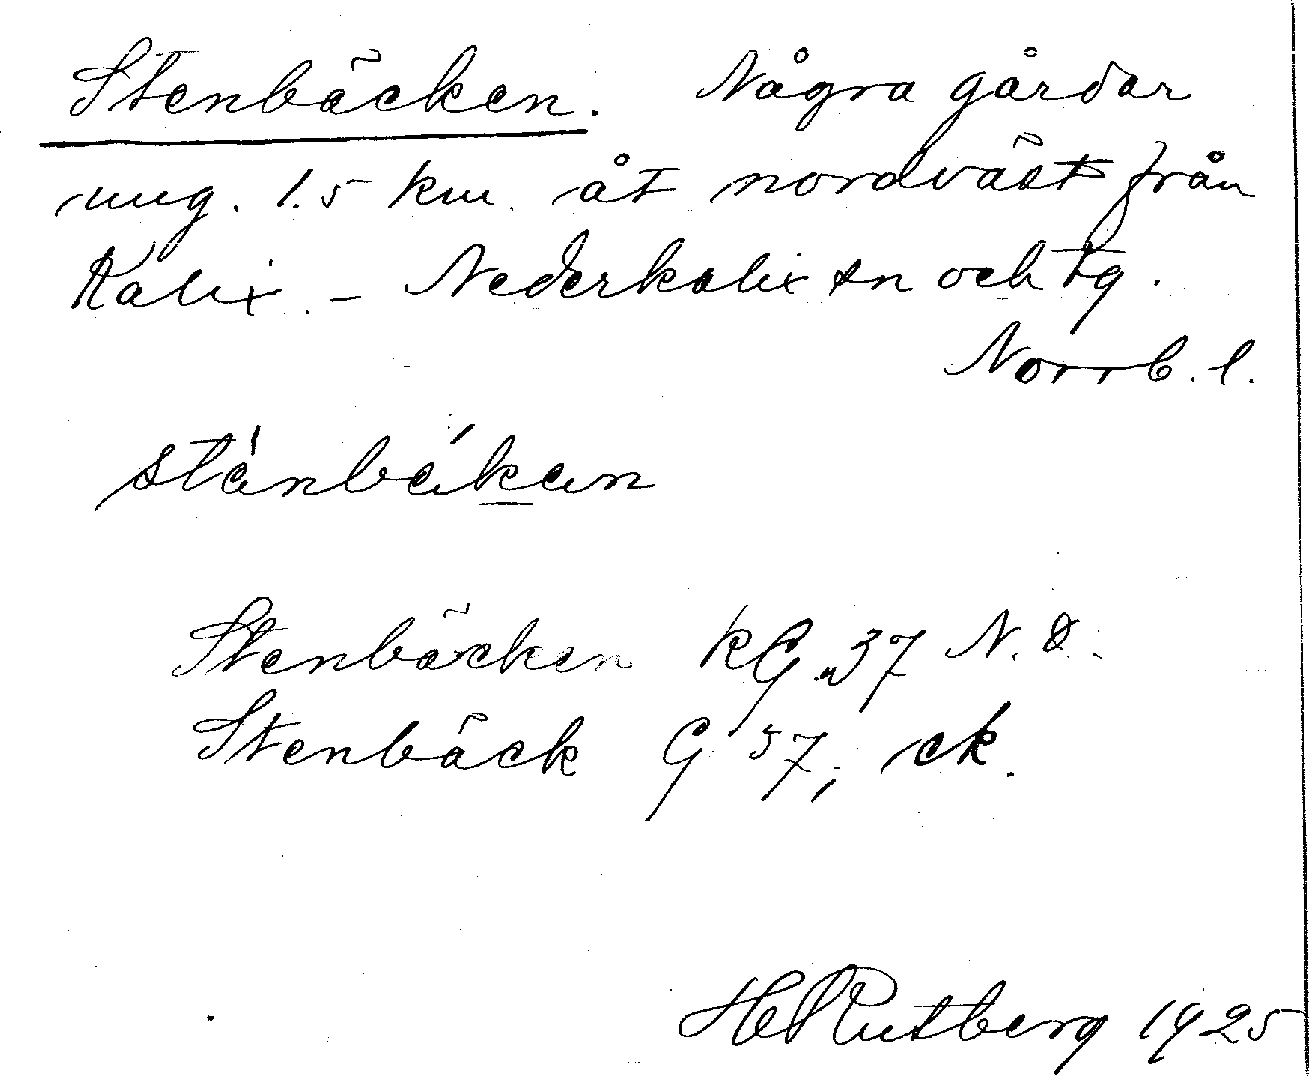 Stenbäcken. Några gårdar
ung. 1.5 km. åt nordväst från
Kalix. – Nederkalix sn och tg.
Norrb. l.
Stenbäcken kG 37 N. D.
Stenbäck G 37, ck.
H Rutberg 1925